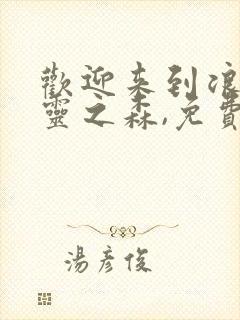 歡迎来到浪
靈之森,免費
湯彥俊